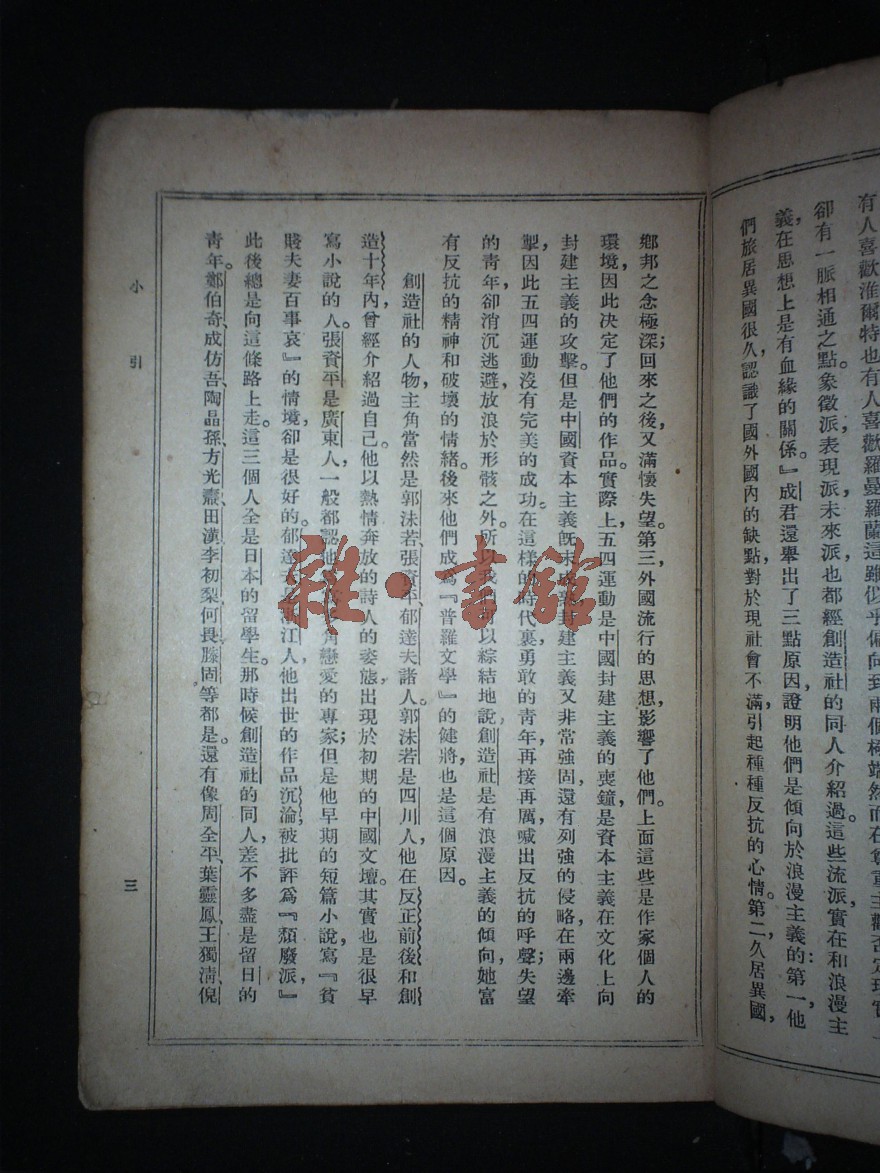 有人喜歡淮爾特也有人喜歡羅曼羅蘭這雖似乎偏向到兩個極端然而在尊重主觀否定現實
卻有一脈相通之點。象徵派表現派未來派也都經創造社的同人介紹過。這些流派實在和浪漫主
義在思想上是有血緣的關係。』成君還舉出了三點原因,證明他們是傾向於浪漫主義的:第一,他
們旅居異國很久,認識了國外國內的缺點,對於現社會不滿,引起種種反抗的心情。第二,久居異國,
鄉邦之念極深;回來之後,又滿懷失望。第三,外國流行的思想,影響了他們。上面這些是作家個人的
環境,因此決定了他們的作品。實際上,五四運動是中國封建主義的喪鐘,是資本主義在文化上向
封建主義的攻擊。但是中國資本主義既未成封建主義又非常強固,還有列強的侵略在兩邊牽
掣,因此五四運動沒有完美的成功。在這樣的時代裏,勇敢的青年,再接再厲,喊出反抗的呼聲;失望
的青年,卻消沉逃避,放浪於形骸之外。所以我可以綜結地說,創造社是有浪漫主義的傾向,她富
有反抗的精神和破壞的情緒。後來他們成爲『普羅文學』的健將,也是這個原因。
創造社的人物,主角當然是郭沫若、張資平、郁達夫諸人。郭沫若是四川人,他在反正前後和創
造十年內,曾經介紹過自己。他以熱情奔放的詩人的姿態,出現於初期的中國文壇。其實也是很早
寫小說的人。張資平是廣東人,一般都認他角戀愛的專家;但是他早期的短篇小說,寫『貧
賤夫妻百事哀』的情境,卻是很好的。郁達江人,他出世的作品沉淪,被批評爲『頹廢派』,
此後總是向這條路上走。這三個人全是日本的留學生。那時候創造社的同人,差不多盡是留日的
青年。鄭伯奇、成仿吾、陶晶孫、方光燾、田漢、李初梨、何畏、滕固等都是。還有像周全平、葉靈鳳、王獨清、倪
小引
三
雜·書館